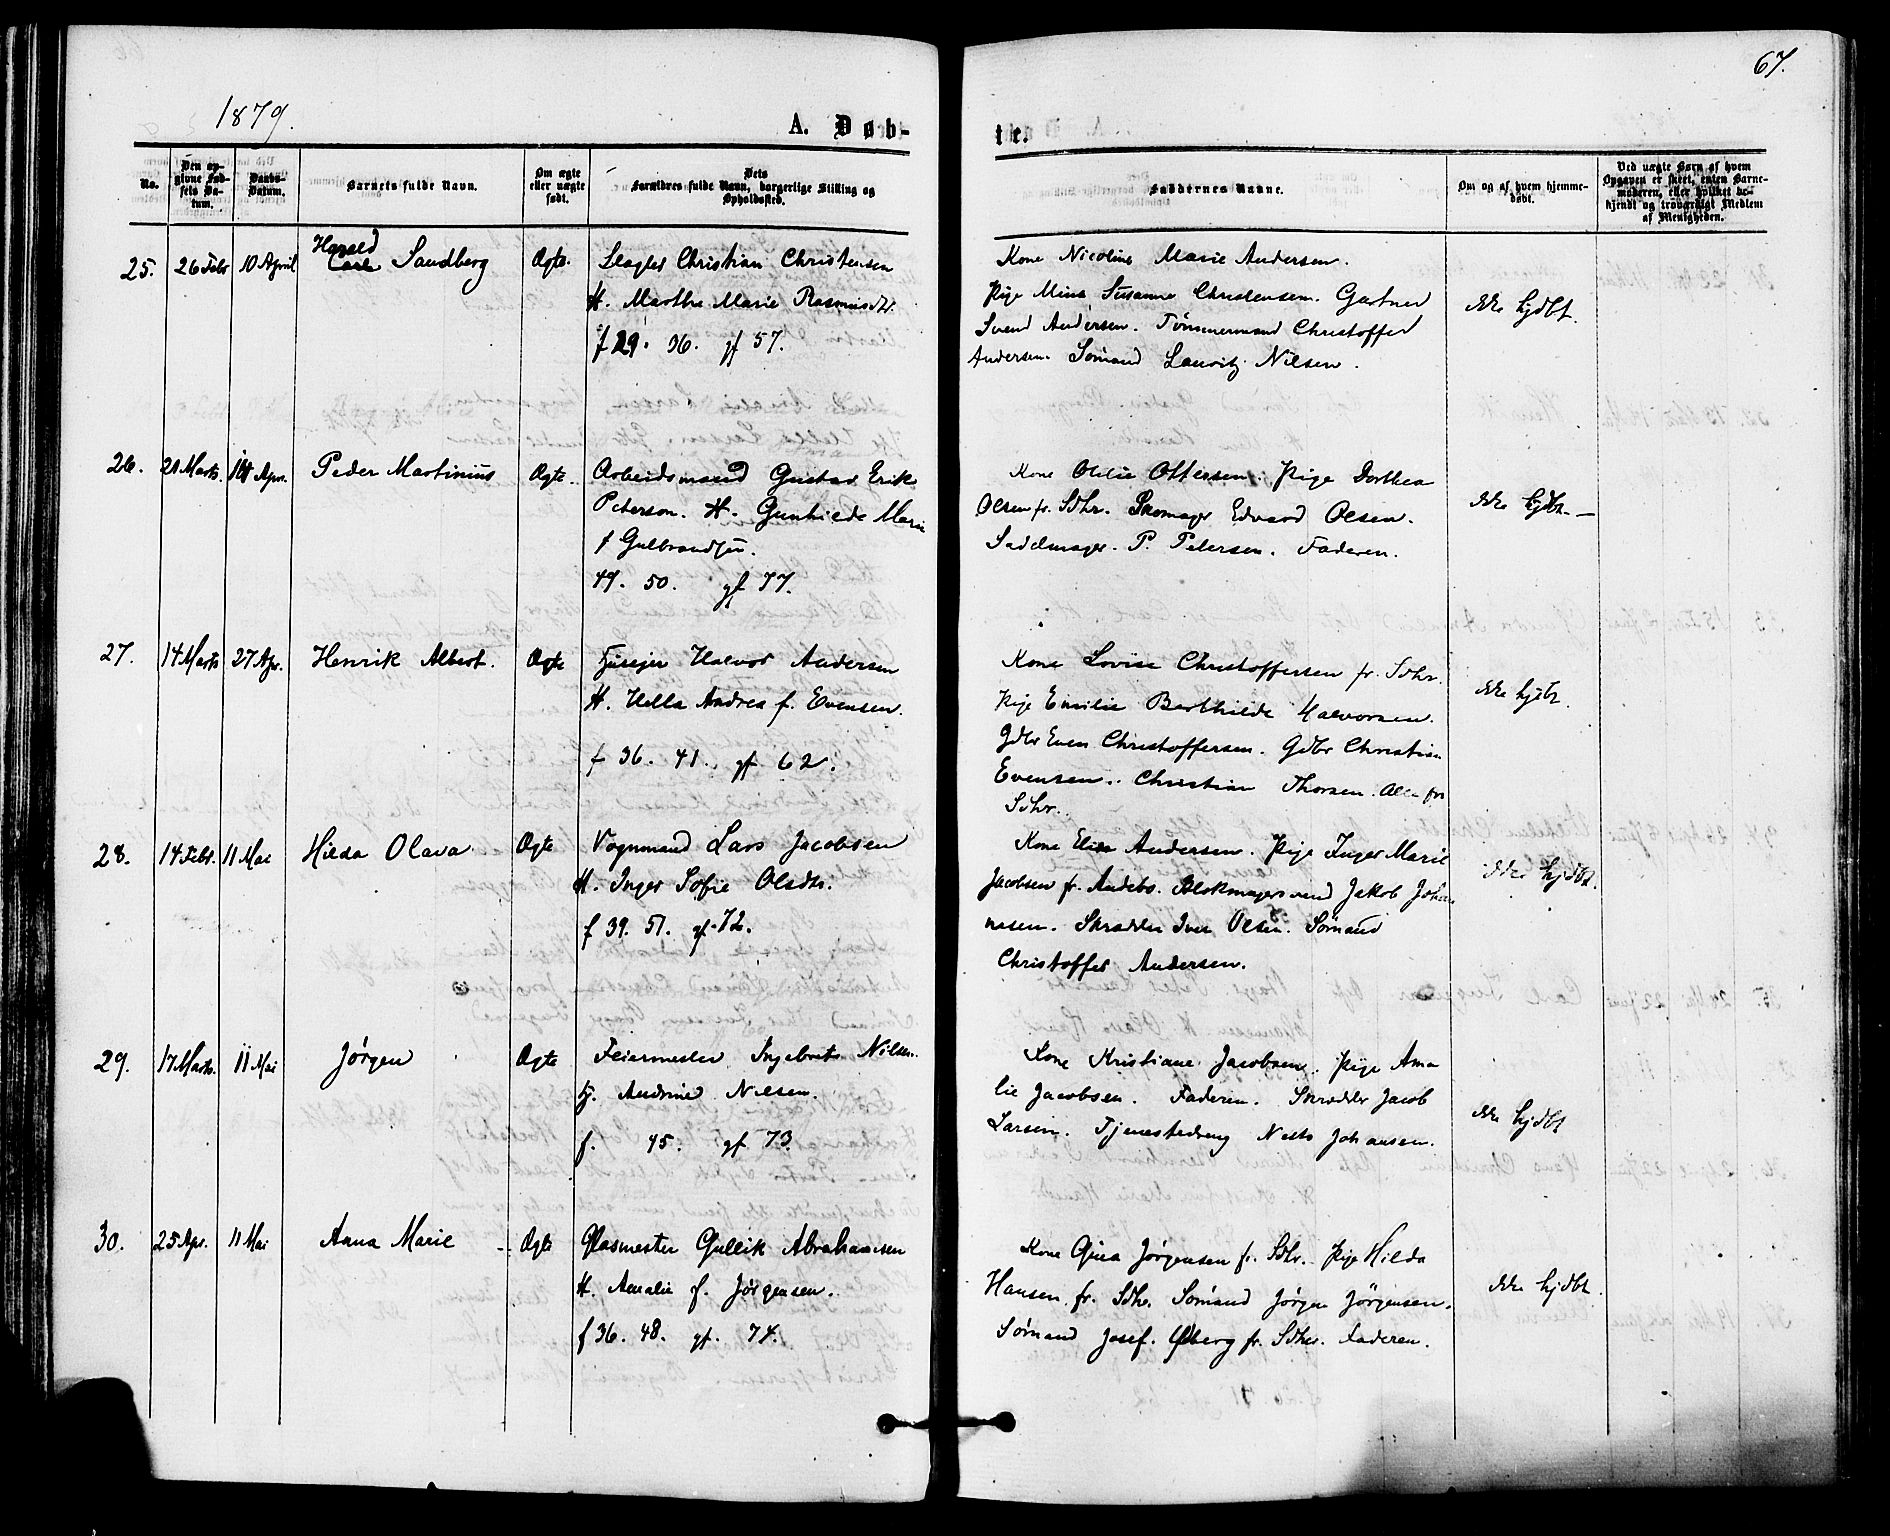 1879.
A. Døb-
No.
Den op-
givne Fød-
sels Da-
tum.
Daabs-
Datum.
Barnets fulde Navn.
Om ægte
eller uægte
født.
Dets
Forældres fulde Navn, borgerlige Stilling og
Opholdssted.
25. 26 Febr 10 April Harald Sandberg Ægte. Christian Christensen
H. Marthe Marie Rasmusdtr.
f 29. 36. gf 57.
26. 21 Marts. 14 Apr. Peder Martinius Ægte. Arbeidsmand Gustav Erik
Peterson. H. Gunhilde Marie
f Gulbrandsen.
49. 50. gf 77.
27. 14 Marts 27 Apr. Henrik Albert. Ægte Huseier Halvor Andersen
H. Helle Andrea f. Evensen.
f 36. 41. gf 62.
28. 14 Febr. 11 Mai Hilda Olava Ægte Vognmand Lars Jacobsen
H. Inger Sofie Olsdtr.
f 39. 51. gf. 72.
29. 17 Marts. 11 Mai Jørgen Ægte Feiermester Ingebret Nilsen.
H. Andrine Nilsen.
f. 45. gf 73.
30. 25 Apr. 11 Mai Anna Marie Ægte Glasmester Gullik Abrahamsen
H. Amalie f. Jørgensen.
f 36. 48. gf. 74.
67.
te.
Faddernes Navne.
Om og af hvem hjemme-
døbt.
Ved uægte Børn af hvem
Opgaven er skeet, enten Barne-
moderen, eller hvilket be-
kjendt og troværdigt Medlem
af Menigheden.
Kone Nicoline Marie Andersen.
Pige Mina Susanne Christensen. Gartner
Svend Andersen. Tømmermand Christoffer
Andersen. Sømand Lauritz Nilsen.
Ikke hjdbt.
Kone Otilie Ottersen. Pige Dorthea
Olsen fr. Sdhr. Skomager Edvard Olsen.
Sadelmager. P. Petersen. Faderen.
Ikke hjdbt.
Kone Lovise Christoffersen fr. Sdhr.
Pige Emilie Berthilde Halvorsen.
Gdbr Even Christoffersen. Gdbr Christian
Evensen. Christian Thorsen. Alle fra
Sdhr.
Ikke hjdbt.
Kone Elise Andersen. Pige Inger Marie
Jacobsen fr. Andebo. Blokmagersvend Jakob Johan
nesen. Skrædder Iver Olsen. Sømand
Christoffer Andersen.
Ikke hjdbt.
Kone Kristiane Jacobsen. Pige Ama
lie Jacobsen. Faderen. Skrædder Jacob
Larsen. Tjenestedreng Johansen.
Ikke hjdbt
Kone Gina Jørgensen fr. Sdhr. Pige Hilda
Hansen fr. Sdhr. Sømand Jørgen Jørgensen.
Sømand Josef. fr. Sdhr. Faderen.
Ikke hjdbt.